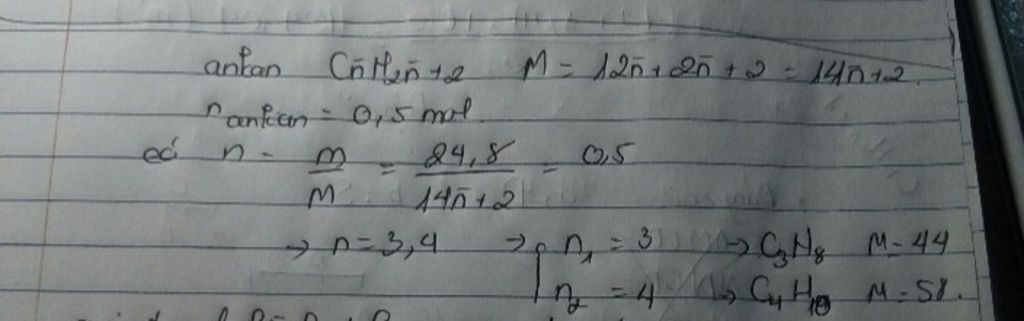 ankan Cn̄H2n̄+2 M = 12n̄ + 2n̄ + 2 = 14n̄+2.
n ankan = 0,5 mol.
có n = m/M = 24,8/14n̄+2 = 0,5
→ n = 3,4 → n1 = 3 → C3H8 M = 44
n2 = 4 → C4H10 M = 58.